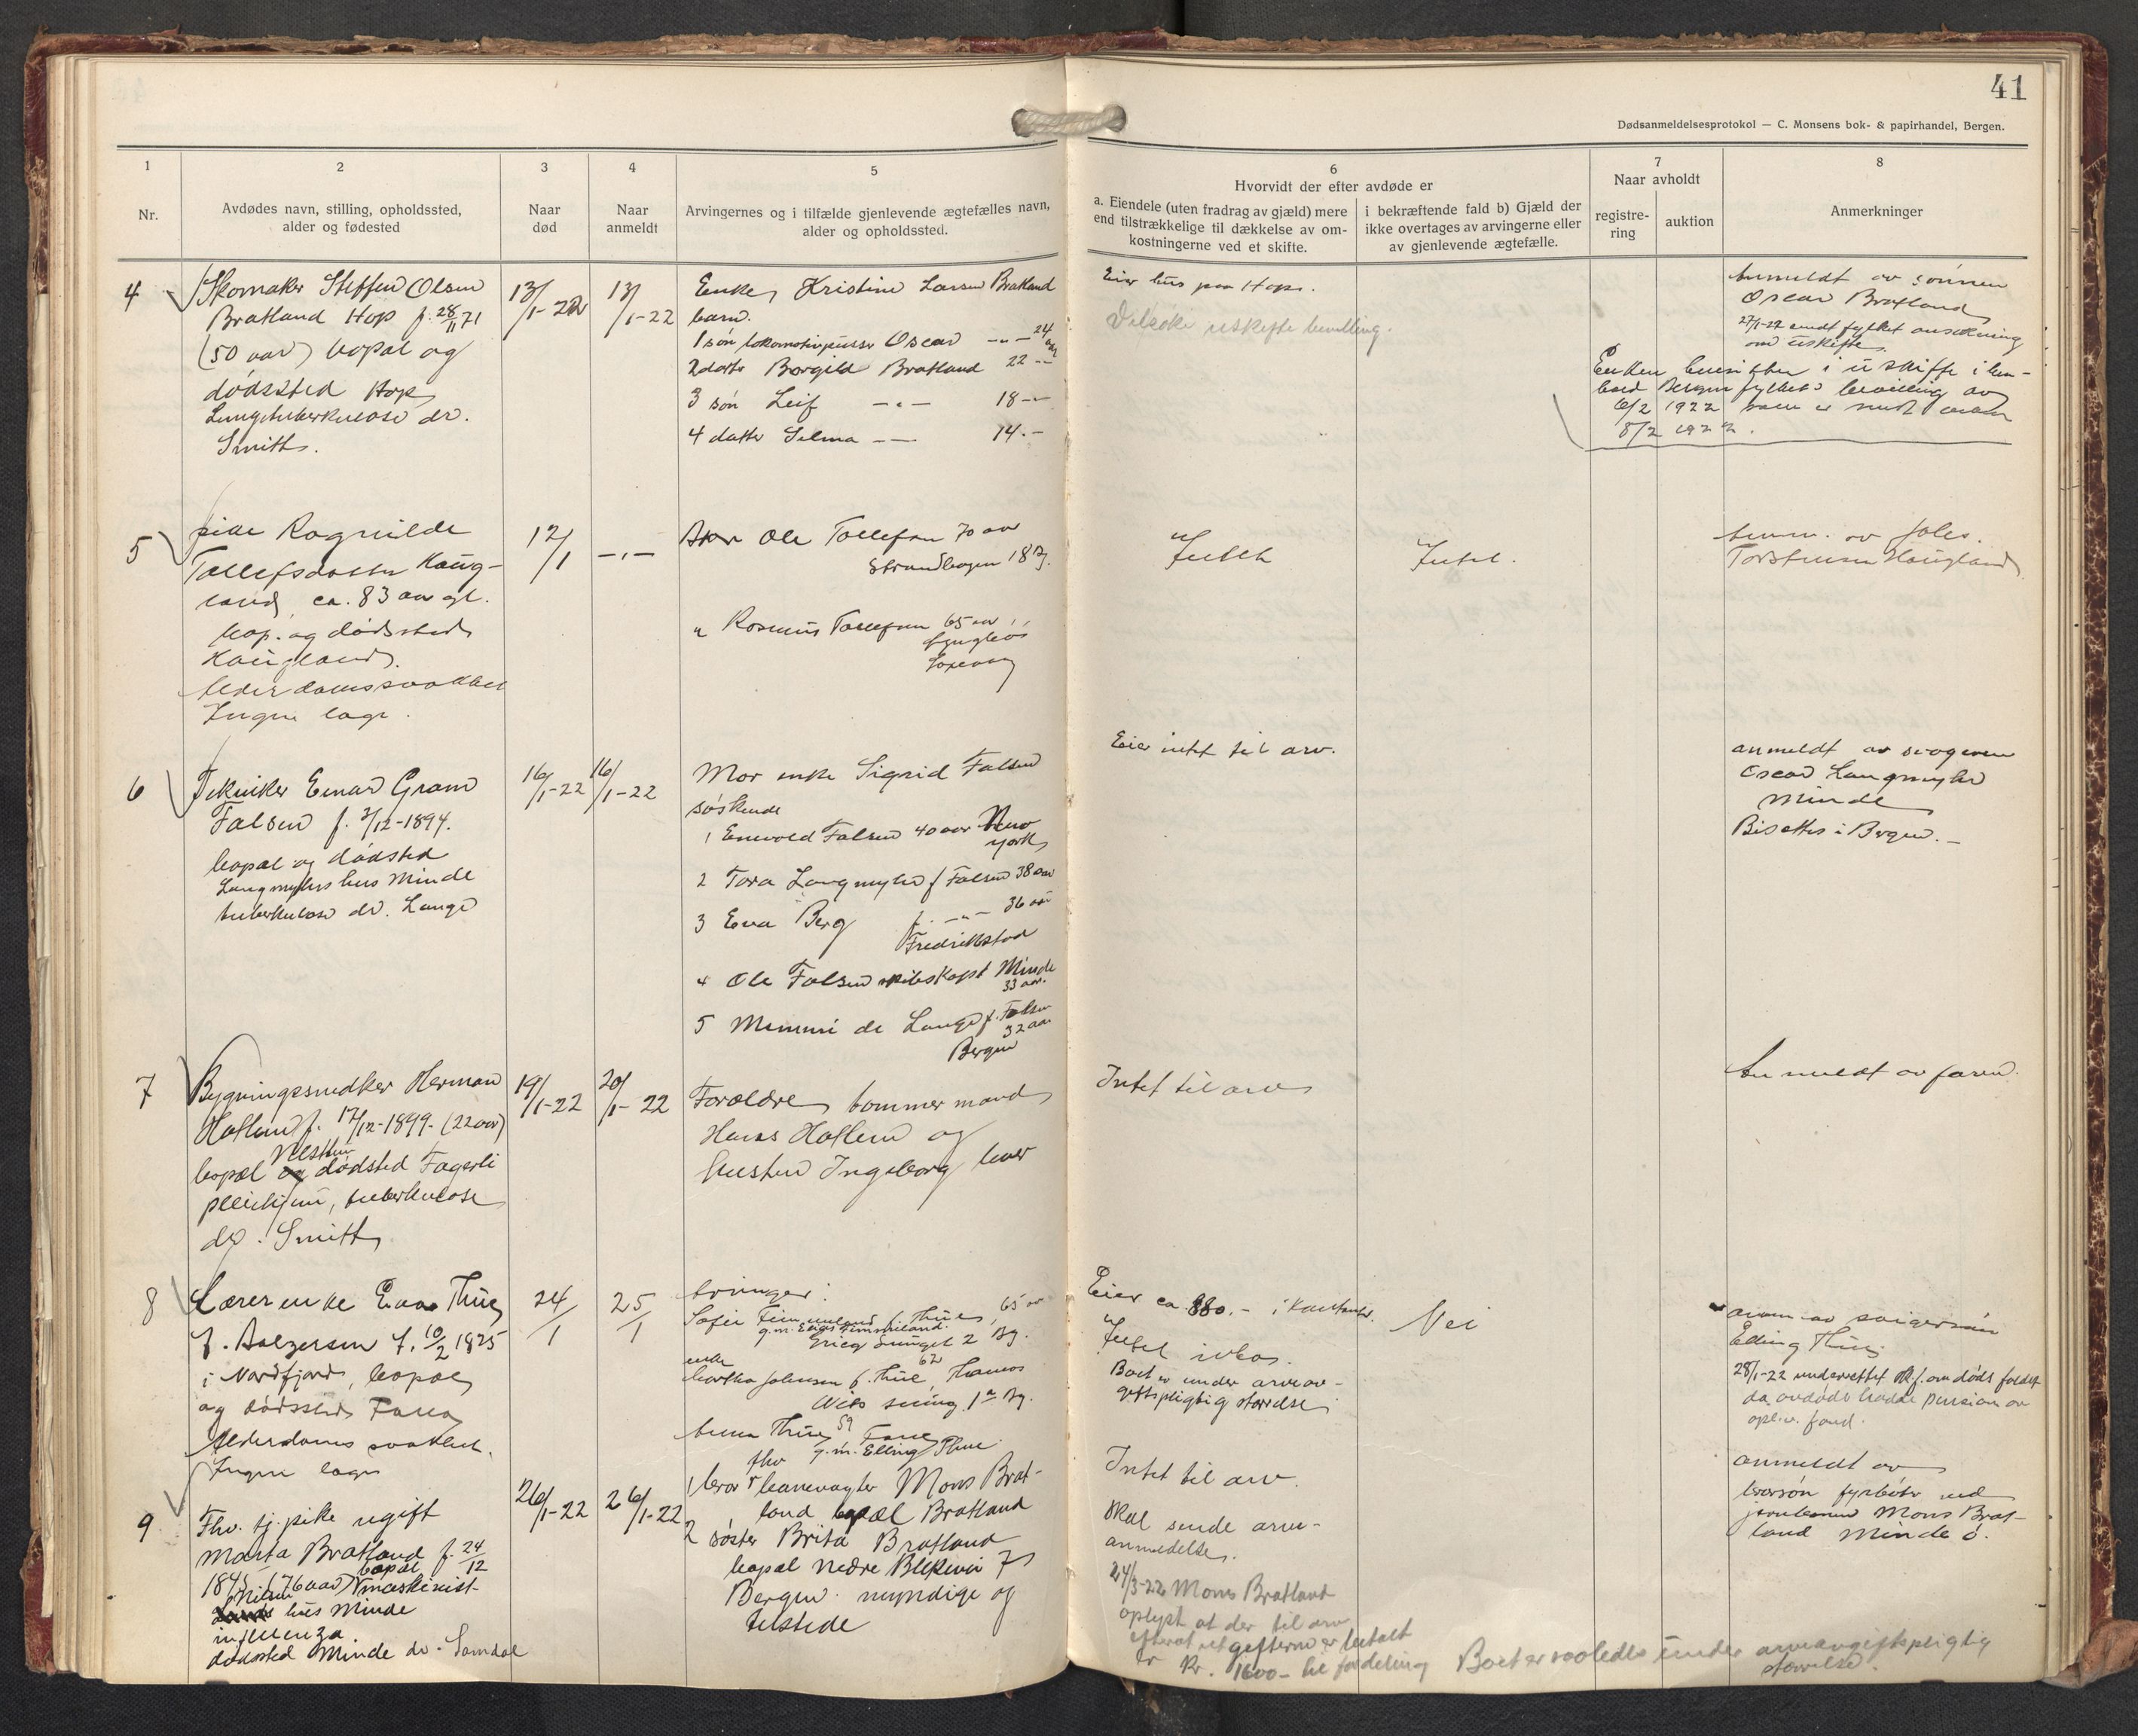 41
Dødsanmeldelsesprotokol — C. Monsens bok- & papirhandel, Bergen.
1
Nr.
2
Avdødes navn, stilling, opholdssted,
alder og fødested
3
Naar
død
4
Naar
anmeldt
5
Arvingernes og i tilfælde gjenlevende ægtefælles navn,
alder og opholdssted.
6
Hvorvidt der efter avdøde er
a. Eiendele (uten fradrag av gjæld) mere
end tilstrækkelige til dækkelse av om-
kostningerne ved et skifte.
i bekræftende fald b) Gjæld der
ikke overtages av arvingerne eller
av gjenlevende ægtefælle.
7
Naar avholdt
registre-
ring
auktion
8
Anmerkninger
4
Skomaker Steffen Olsen
Bratland Hop f. 28/11 71
(50 aar) bopæl og
dødssted Hop
Lungetuberkulose dr.
Smith.
13/1-22
13/1-22
Enke Kristine Larsen Bratland
barn.
1 søn lokomotivpusser Oscar -"- 24 aar
2 datter Borgild Bratland 22 -"-
3 søn Leif -"- 18 -"-
4 datter Selma -"- 14 -"-
Eier hus paa Hop.
Vil søke uskifte bevilling.
Anmeldt av sønnen
Oscar Bratland
27/1-22 sendt fylket ansøkning
om uskifte.
Enken hensitter i uskifte i hen-
hold Bergen fylkes bevilling av
6/2 1922
8/2 1922.
5
pike Ragnilde
Tollefsdatter Haug-
land, ca. 83 aar gl.
bop. og dødssted
Haugland.
Alderdomssvakhet
Ingen læge.
12/1
-"-
Bror Ole Tollefsen 70 aar
Strandhagen 18 B.
" Rasmus Tollefsen 65 aar
Laxevaag
Intet
Intet.
Anm. av
Torstensen Haugland
6
Tekniker Einar Gram
Falsen f. 3/12-1894.
bopæl og dødsted
Langmyhrs hus Minde
tuberkulose dr. Lange
16/1-22
16/1-22
Mor enke Sigrid Falsen
søskende
1 Enevold Falsen 40 aar New
York
2 Tora Langmyhr f. Falsen 38 aar
3 Eva Berg f. -"- 36 aar
Fredrikstad
4 Ole Falsen skibskapt Minde
33 aar.
5 Mimmi de Lange f. Falsen
32 aar
Bergen
Eier intet til arv.
anmeldt av svogeren
Oscar Langmyhr
Minde
Bisættes i Bergen. -
7
Bygningssnedker Herman
Hatlem f. 17/12-1899. (22 aar)
bopæl Nesttun dødsted Fagerli
pleiehjem, tuberkulose
dr. Smith
19/1-22
20/1-22
Forældre tømmermand
Hans Hatlem og
hustru Ingeborg lever
Intet til arv
Anmeldt av faren.
8
Lærerenke Eva Thue
f. 10/2 1825
i Nordfjord, bopæl
og dødssted Fana
Alderdoms svakhet.
Ingen læge
24/1
25/1
Arvinger:
Sofie Timmeland f. Thue, 65 aar
g.m. Elias Timmeland.
enke
Martha Johnsen f. Thue, 62
1a Bg.
Anna Thue 59 Fana
g.m. Elling Thue
Eier ca 880.- i kontanter.
Intet
Boet er under arveav-
giftspligtig størrelse
Nei
anm. av svigersøn
Elling Thue
28/1-22 underrettet om dødsfaldet
da avdøde hadde pension av
fond.
9
Fhv. tj. pike ugift
Marta Bratland f. 24/12
1845 (76 aar) bopæl maskinist
Nilsen
hus Minde
influenza
dødssted Minde dr. Samdal
26/1-22
26/1-22
1 bror fhv banevagter Mons Brat-
land bopæl Bratland
2 søster Brita Bratland
bopæl nedre Blekevei 7
Bergen myndige og
tilstede
Intet til arv.
Skal sende arve-
anmeldelse.
24/3-22 Mons Bratland
oplyst at der til arv
efterat utgifterne er betalt
er kr. 1600- til fordeling
Boet er saaledes under arveavgiftspligtig
størrelse.
anmeldt av
brorsøn fyrbøter ved
jernbanen Mons Brat-
land Minde